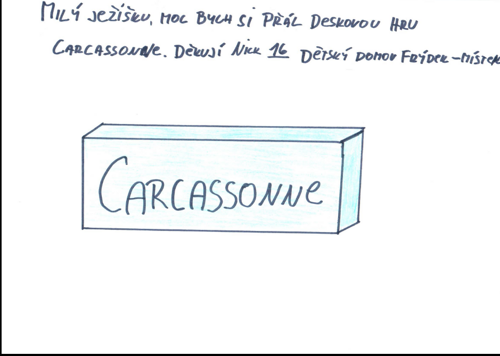 MILÝ JEŽÍŠKU, MOC BYCH SI PŘÁL DESKOVOU HRU
CARCASSONNE. DĚKUJI NICK 16 DĚTSKÝ DOMOV FRÝDEK-MÍSTEK
CARCASSONNE